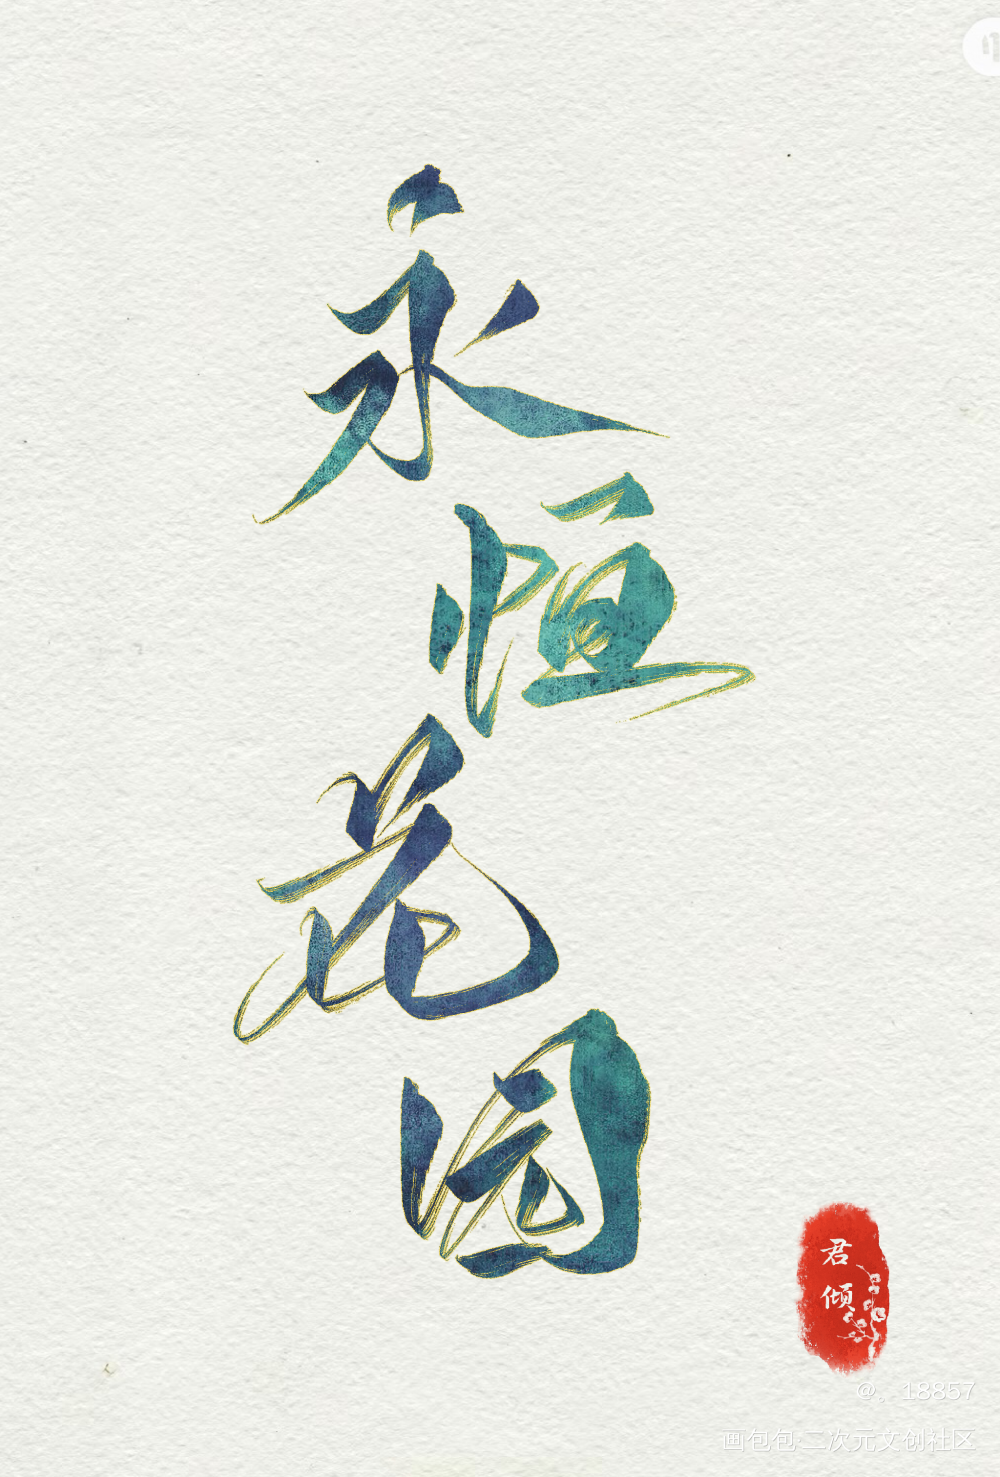 永恒花园
君倾
@、18857
画包包·二次元文创社区